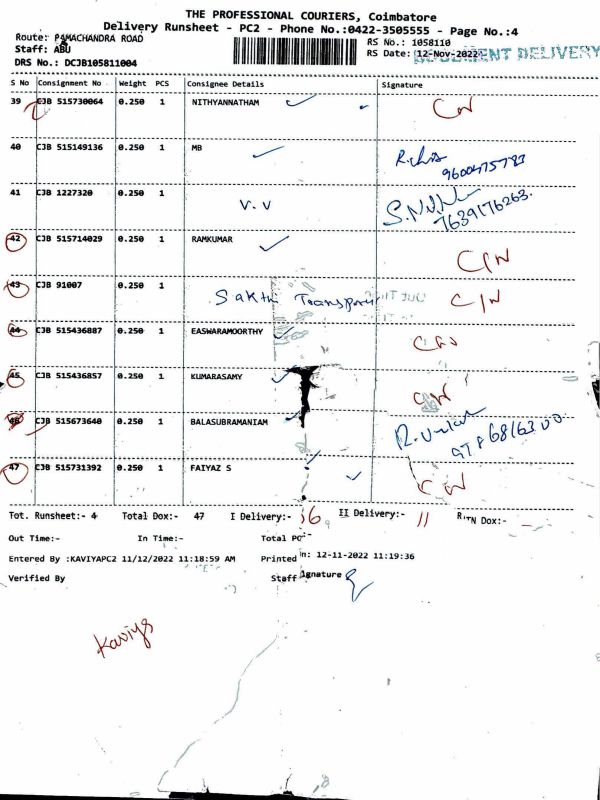 THE PROFESSIONAL COURIERS, Coimbatore
Delivery Runsheet - PC2 - Phone No.:0422-3505555 - Page No.:4
Route: PAMACHANDRA ROAD
RS No.: 1058110
Staff: ABU
RS Date: 12-Nov-2022
DOCUMENT DELIVERY
DRS No.: DCJB105811004
S No Consignment No Weight PCS Consignee Details Signature
39 CJB 515730064 0.250 1 NITHYANNATHAM
40 CJB 515149136 0.250 1 MB 9600475783
41 CJB 1227320 0.250 1 V.V 7639176263.
42 CJB 515714029 0.250 1 RAMKUMAR C/N
43 CJB 91007 0.250 1 Sakthi Transport C/N
44 CJB 515436887 0.250 1 EASWARAMOORTHY
45 CJB 515436857 0.250 1 KUMARASAMY
46 CJB 515673640 0.250 1 BALASUBRAMANIAM
47 CJB 515731392 0.250 1 FAIYAZ S
Tot. Runsheet:- 4 Total Dox:- 47 I Delivery:- 36 II Delivery:- 11 RTN Dox:-
Out Time:- In Time:- Total PC:-
Entered By :KAVIYAPC2 11/12/2022 11:18:59 AM Printed in: 12-11-2022 11:19:36
Verified By Staff Signature
Kaviya